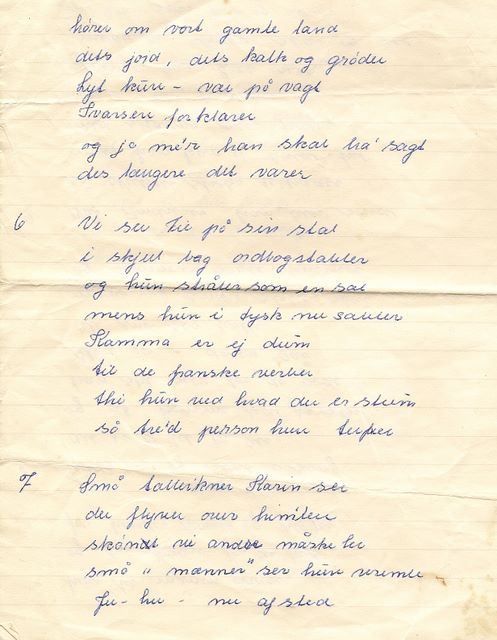 hører om vort gamle land
dets jord, dets kalk og grøder
Lyt kun - vær på vagt
Ivarsen forklarer
og jo me'r han skal ha' sagt
des længere det varer
6 Vi ser til på sin stol
i skjul bag ordbogstabler
og hun stråler som en sol
mens hun i tysk nu sabler
Hamma er ej dum
til de franske verber
thi hun ved hvad der er stum
så tre'd person hun
7 Små tallerkner Karin ser
der flyver over himlen
skøndt vi andre måske ler
små "mænner" ser hun vrimle
Ju - hu - nu afsted